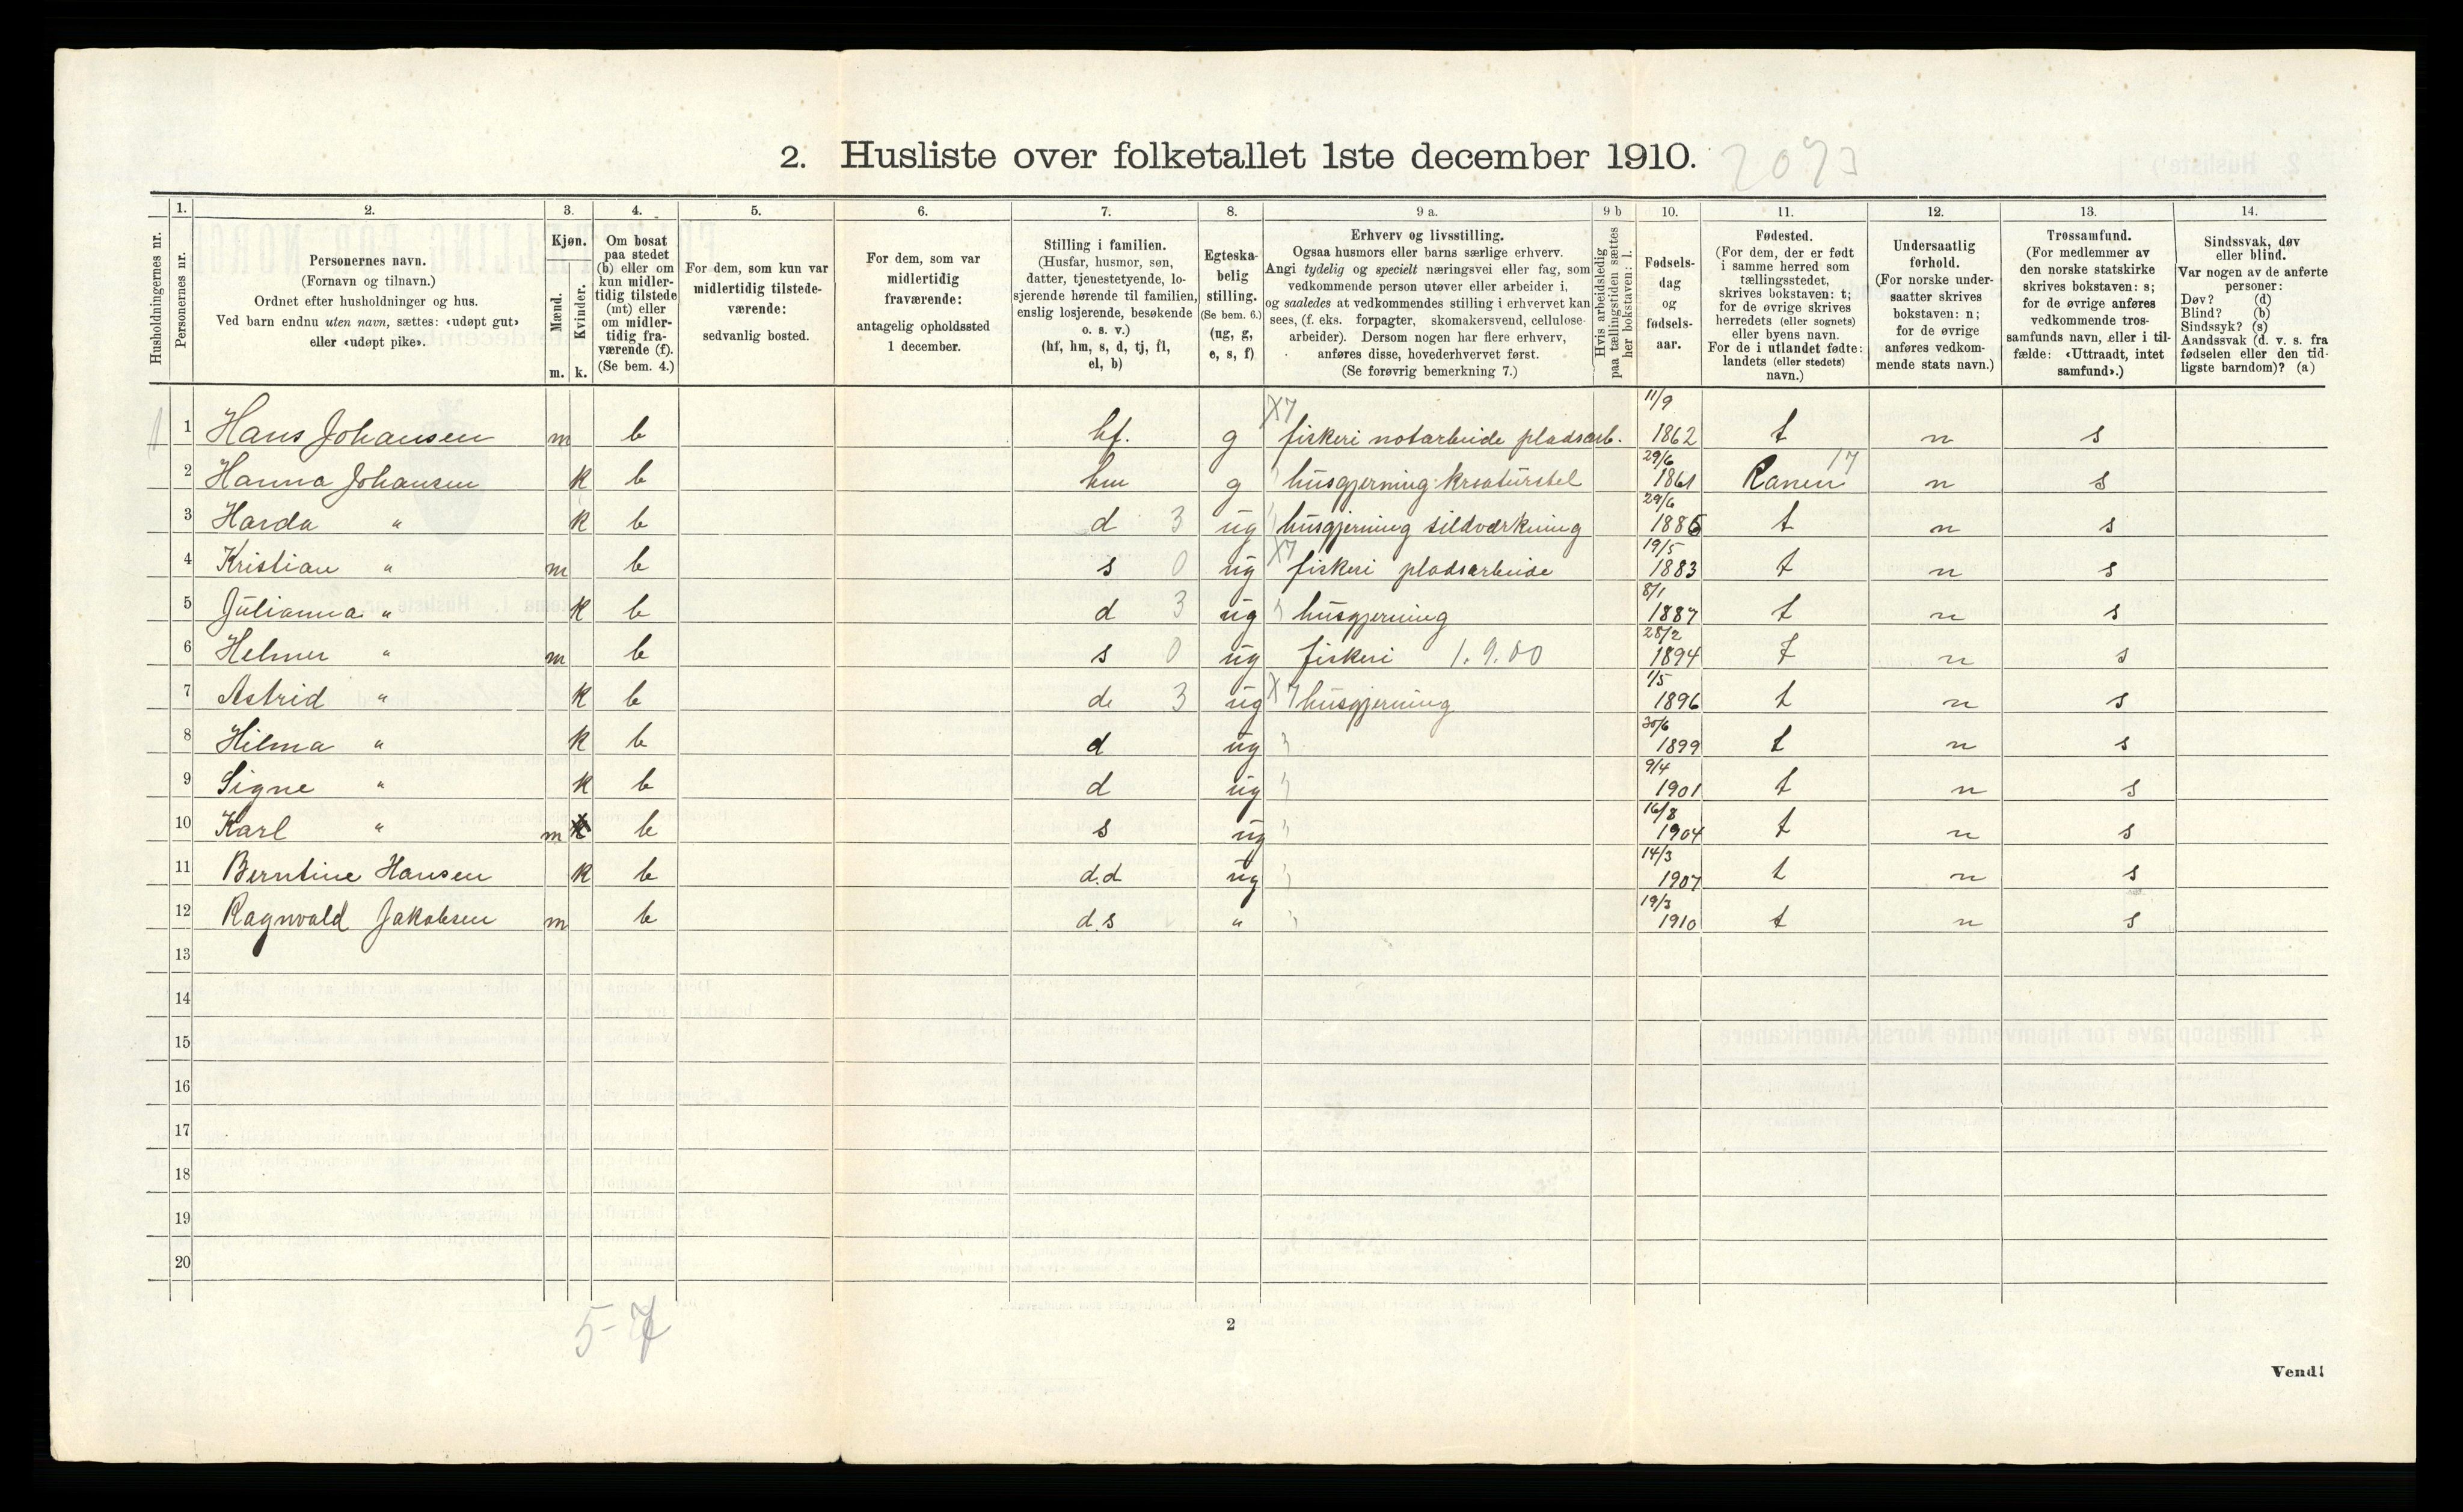 2. Husliste over folketallet 1ste december 1910. 2073
Husholdningernes nr.
1. Personernes nr.
2. Personernes navn. (Fornavn og tilnavn.) Ordnet efter husholdninger og hus. Ved barn endnu uten navn, sættes: «udøpt gut» eller «udøpt pike».
3. Kjøn. Mænd. m. Kvinder. k.
4. Om bosat paa stedet (b) eller om kun midlertidig tilstede (mt) eller om midlertidig fraværende (f). (Se bem. 4.)
5. For dem, som kun var midlertidig tilstedeværende: sedvanlig bosted.
6. For dem, som var midlertidig fraværende: antagelig opholdssted 1 december.
7. Stilling i familien. (Husfar, husmor, søn, datter, tjenestetyende, losjerende hørende til familien, enslig losjerende, besøkende o. s. v.) (hf, hm, s, d, tj, fl, el, b)
8. Egteskabelig stilling. (Se bem. 6.) (ug, g, e, s, f)
9 a. Erhverv og livsstilling. Ogsaa husmors eller barns særlige erhverv. Angi tydelig og specielt næringsvei eller fag, som vedkommende person utøver eller arbeider i, og saaledes at vedkommendes stilling i erhvervet kan sees, (f. eks. forpagter, skomakersvend, cellulosearbeider). Dersom nogen har flere erhverv, anføres disse, hovederhvervet først. (Se forøvrig bemerkning 7.)
9 b Hvis arbeidsledig paa tællingstiden sættes her bokstaven: l.
10. Fødselsdag og fødselsaar.
11. Fødested. (For dem, der er født i samme herred som tællingsstedet, skrives bokstaven: t; for de øvrige skrives herredets (eller sognets) eller byens navn. For de i utlandet fødte: landets (eller stedets) navn.)
12. Undersaatlig forhold. (For norske undersaatter skrives bokstaven: n; for de øvrige anføres vedkommende stats navn.)
13. Trossamfund. (For medlemmer av den norske statskirke skrives bokstaven: s; for de øvrige anføres vedkommende trossamfunds navn, eller i tilfælde: «Uttraadt, intet samfund».)
14. Sindssvak, døv eller blind. Var nogen av de anførte personer: Døv? (d) Blind? (b) Sindssyk? (s) Aandssvak (d. v. s. fra fødselen eller den tidligste barndom)? (a)
1 1 Hans Johansen m b hf. g X7 fiskeri notarbeide pladsarb. 11/9 1862 t n s
2 Hanna Johansen k b hm g husgjerning kreaturstel 29/6 1861 Ranen 17 n s
3 Harda " k b d 3 ug husgjerning sildværkning 29/6 1886 t n s
4 Kristian " m b s 0 ug X7 fiskeri pladsarbeide 19/5 1883 t n s
5 Julianna " k b d 3 ug husgjerning 8/1 1887 t n s
6 Helmer " m b s 0 ug fiskeri 1.9.00 28/2 1894 t n s
7 Astrid " k b d 3 ug X7 husgjerning 1/5 1896 t n s
8 Hilma " k b d ug 30/6 1899 t n s
9 Signe " k b d ug 9/4 1901 t n s
10 Karl " m b s ug 16/8 1904 t n s
11 Berntine Hansen k b d.d ug 14/3 1907 t n s
12 Ragnvald Jakobsen m b d.s " 19/3 1910 t n s
13
14
15
16
17
18
19
20
5-7
2
Vend!